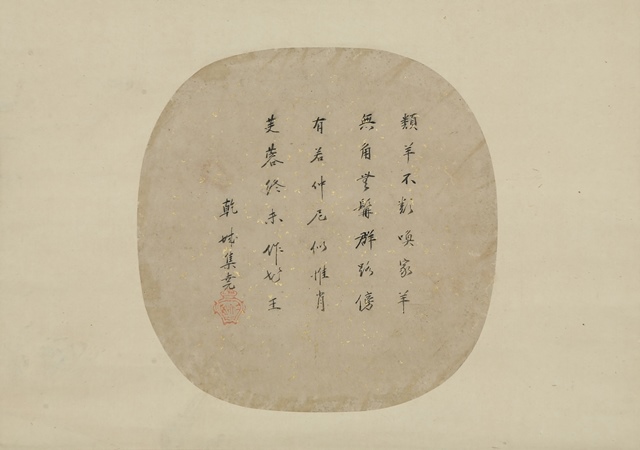 類羊不類喚家羊
無角無髯群路傍
有若仲尼似惟肖
芙蓉終未作花王
乾城集堯